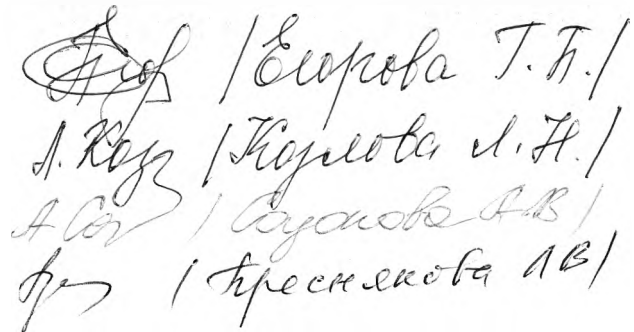 /Егорова Т.П./
Л. Коз /Козлова Л.Н./
А. Соз / А.В/
/ Преснякова Л В/